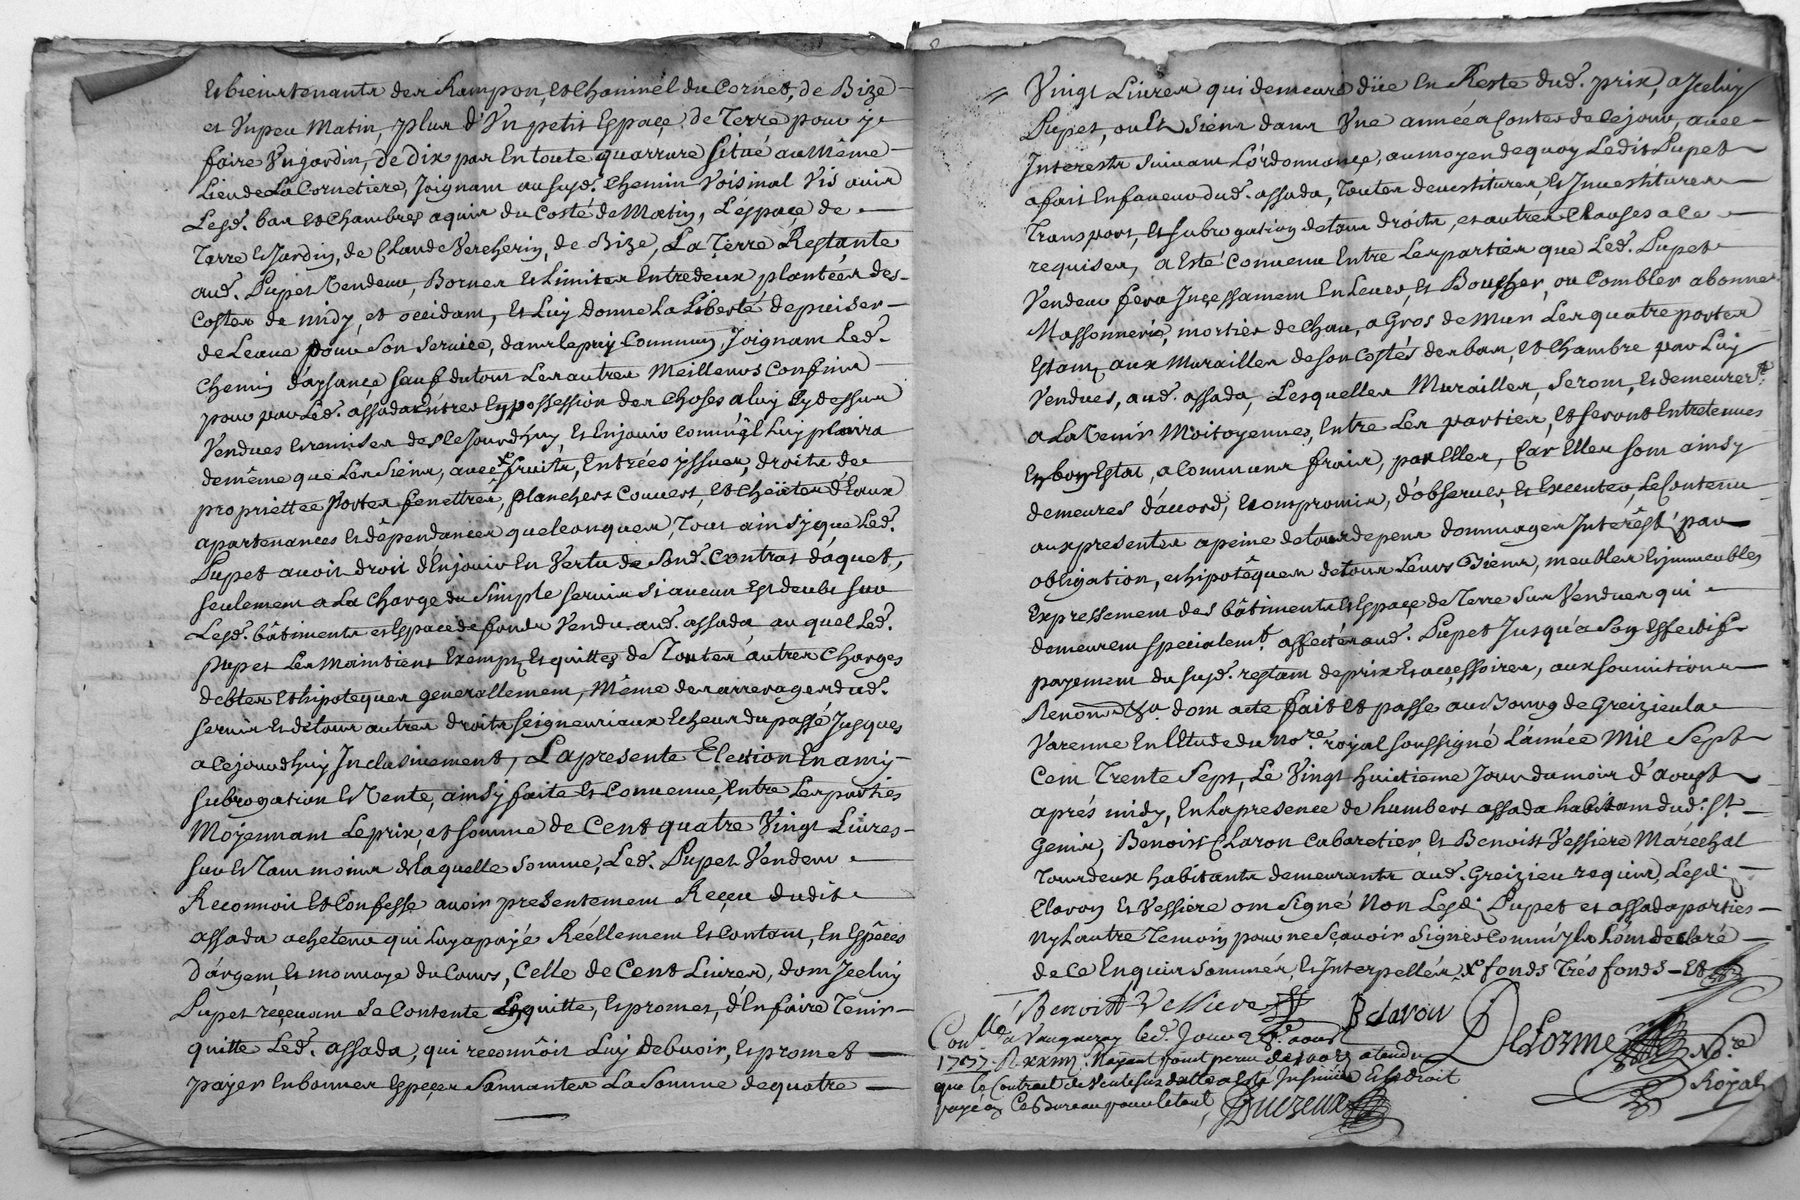 et bienstenants des Rampon, et Chaninel du Cornet, de Bize
et Un peu Matin, plus d'Un petit Espace de Terre pour y
faire Un jardin, de dix pas En toute quarrure Situé au Même
Lieu de La Cornetiere, Joignant au susd. Chemin Voisinal Vis avis
Lesd. bas et Chambres aquis du Costé de Matin, L'espaçe de
Terre et Jardin, de Claude Vercherin, de Bize, La Terre Restante
aud. Pupet Vendeur, Bornes et Limites Entredeux plantées des
Costes de midy, et occidant, et Luy donne La Liberté de puiser
de Leaue pour Son Service, dans le puy Commun, Joignant Led.
Chemin d'aysançe sauf du tout Les autres Meilleurs Confins
pour par Led. assada Entrer En possession des Choses a luy Cy dessus
Vendues et remises dès Cejourdhuy, et En jouir comm'êl Luy plairra
de même que Les Siens, avec x fruits, Entrées yssues, droits de
propriettee portes fenettres, planchers Couvert, et Cheütes d'Eaux
apartenances et dêpendances quelconques, Tout ainsy que Led.
Pupet avoit droit d'En jouir En Vertu de Sond. Contrat d'aquet,
seulement a La Charge du Simple servis si aucun Est deubt sur
Lesd. bâtiments et Espace de fonds Vendu aud. assada au quel Led.
Pupet Les Maintient Exempt, et quittes de Toutes autres Charges
debtes et hipoteques generallement, Même des arrerages dud.
servis et de tout autres droits seigneuriaux Echeus du passé Jusques
a Cejourdhuy Inclusivement, La presente Election En amy
subrogation et Vente, ainsy faite et Convenue, Entre Les parties
Moyennant Le prix, et somme de Cent quatre Vingt Livres
sur et Tant moins de laquelle somme, Led. Pupet Vendeur
Reconnoit et Confesse avoir presentement Reçeu dudit
assada acheteur qui Luy a payé Réellement et Contant, En Espêces
d'argent, et monnoye du Cours, Celle de Cent Livres, dont Jceluy
Pupet reçevant se Contente Et quitte, et promet, d'En faire Tenir
quitte Led. assada, qui reconnôit Luy debvoir, et promet
payer En bonnes Espeçes Sonnantes La Somme de quatre
Vingt Livres qui demeure düe En Reste dud. prix, a Jceluy
Pupet, ou Es Siens dans Vne année a Conter de Cejour, avec
Interests Suivant L'órdonnançe, au moyen de quoy Ledit Pupet
a fait En faveur dud. assada, Toutes devestitures, et Jnvestitures
Transport, et subrogation de tous droits, et autres Clauses a Ce
requises, a Esté Convenu Entre Les parties que Led. Pupet
Vendeur fera Jnçessament En Lever, et Boucher, ou Combler a bonne
Massonnerie, mortier de Chau, a Gros de Mur Les quatre portes
Estant aux Murailles de son Costés des bas, et Chambre par Luy
Vendues, aud. assada, Lesquelles Murailles, Seront, et demeurer.t
a La Venir Moitoyennes, Entre Les parties, et seront Entretenues
En bon Estat, a Communs frais, par Elles, Car Elles sont ainsy
demeures d'accord, et compromis, d'observer, et Executer, Le Contenu
aux presentes a peine de tous depens dommages Interêst, par
obligation, et hipotêques de tous Leurs Biens, meubles et jmmeubles
Expressement des bâtiments et Espaçe de Terre Sus Vendues qui
demeurent specialem.t affectés aud. Pupet Jusqu'a Son Effectif
payement du susd. restant de prix et accessoires, aux soumitions
Renon.ons &a. dont acte fait et passe au Bourg de Greizieu la
Varenne En l'Etude du No.re royal soussigné L'année Mil Sept
Cent Trente Sept, Le Vingt huitieme Jour du mois d'aoust
aprés midy, En La presence de humbert assada habitant dud. St.
Genis, Benoist Claron Cabaretier, et Benoist Vessiere Maréchal
Tous deux habitants demeurants aud. Greizieu requis, Lesd.
Claron et Vessiere ont Signé Non Lesd. Pupet et assada parties
Ny Lautre Temoin pour ne Sçavoir Signer Comm'ils L'ont declaré
de Ce Enquis Sommés, et Interpellés, x fonds Trés fonds - et
Benoist Vessiere B Clavou Delorme No.re
Royal
Con.lle a Vaugneray led. Jour 28.e aoust
1737. R xxiiii. Nayant point perçu de 100.e attendu
que le Contract de Vente sus datté a Esté Insinüé et le droit
payé en Ce Bureau pour le tout, Duezeux